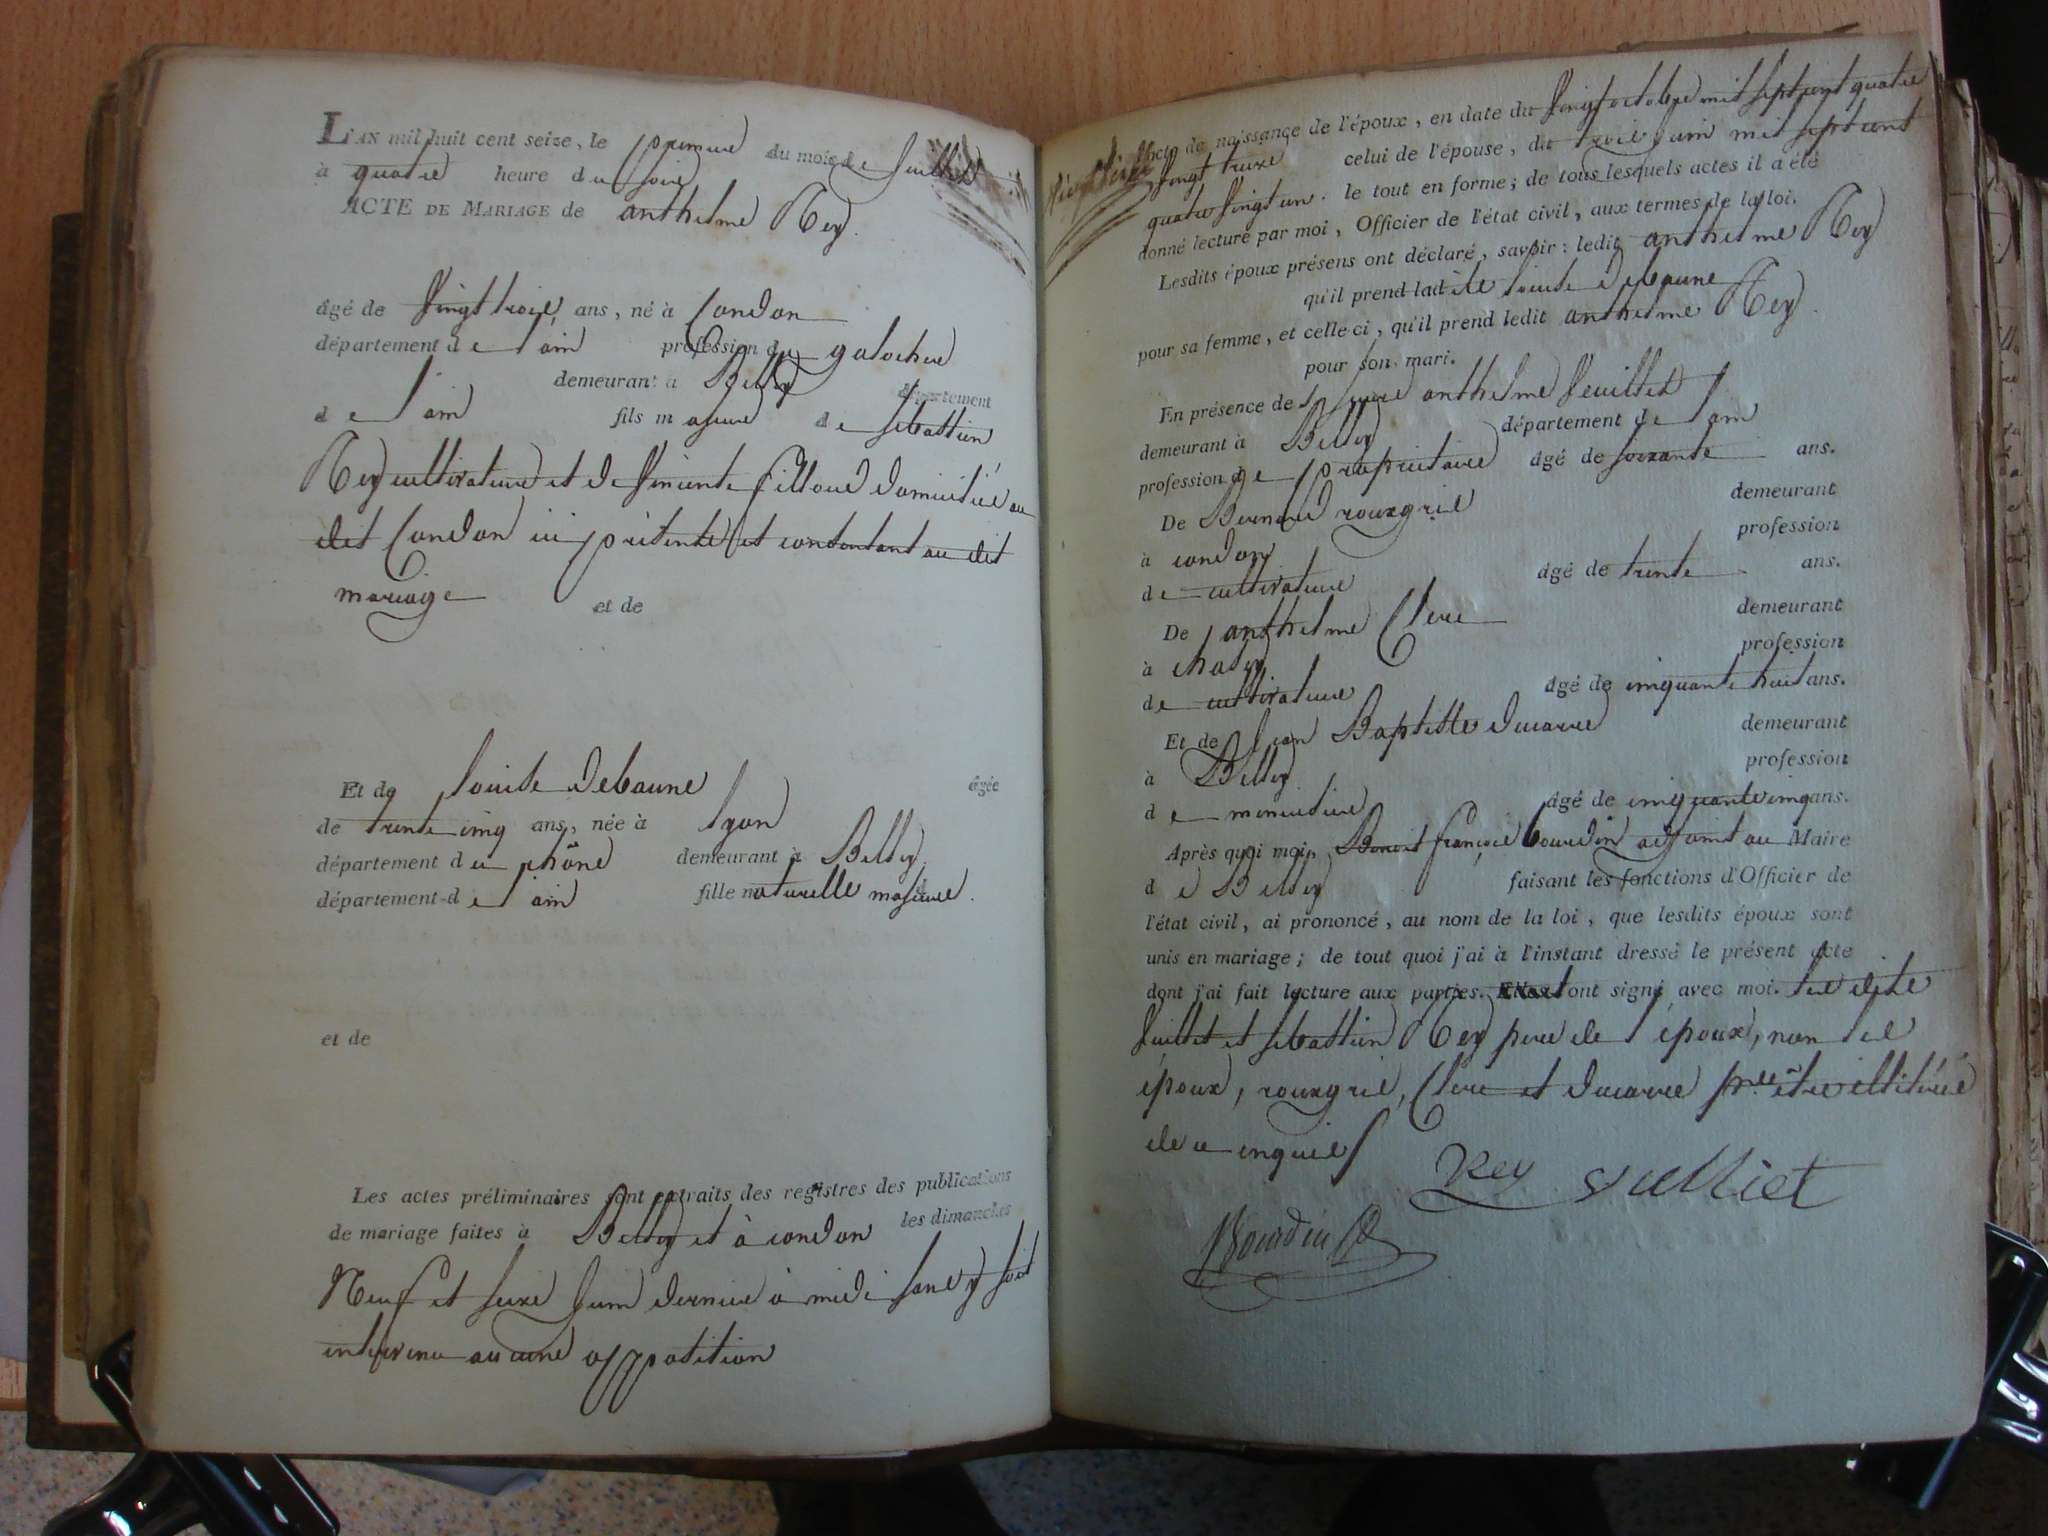 L'AN mil huit cent seize, le premier du mois de Juillet
à quatre heure du soir
ACTE DE MARIAGE de anthelme Rey.
âgé de vingt trois ans, né à Condon
département de l'ain profession de galocher
demeurant à Belley département
de l'ain fils majeur de sebastien
Rey cultivateur et de vincente fillous domiciliés au
dit Condon ici présents et consentant au dit
mariage et de
Et de louise debaune âgée
de trente cinq ans, née à lyon
département du rhône demeurant à Belley
département de l'ain fille naturelle majeure.
et de
Les actes préliminaires sont extraits des registres des publications
de mariage faites à Belley et à condon les dimanches
Neuf et seize Juin dernier à midi sans y soit
intervenu aucune opposition
acte de naissance de l'époux, en date du vingt octobre mil sept cent quatre
vingt treize celui de l'épouse, du trois Juin mil sept cent
quatre vingt un. le tout en forme; de tous lesquels actes il a été
donné lecture par moi, Officier de l'état civil, aux termes de la loi.
Lesdits époux présens ont déclaré, savoir: ledit anthelme Rey
qu'il prend ladite louise debaune
pour sa femme, et celle-ci, qu'il prend ledit anthelme Rey.
pour son mari.
En présence de Sr anthelme vuillet
demeurant à Belley département de l'ain
profession de propriétaire âgé de soixante ans.
De Bernard rouxgris demeurant
à condon profession
de cultivateur âgé de trente ans.
De anthelme Clerc demeurant
à chazey profession
de cultivateur âgé de cinquante huit ans.
Et de Jean Baptiste ducarre demeurant
à Belley profession
de menuisier âgé de cinquante cinq ans.
Après quoi moi, Benoit françois bourdin adjoint au Maire
de Belley faisant les fonctions d'Officier de
l'état civil, ai prononcé, au nom de la loi, que lesdits époux sont
unis en mariage; de tout quoi j'ai à l'instant dressé le présent acte
dont j'ai fait lecture aux parties. ont signé avec moi. les dits
vuillet et sebastien Rey pere de l'époux, non les
époux, rouxgris, Clerc et ducarre pr. être illitérés
de ce enquis
Rey vulliet
Bourdin